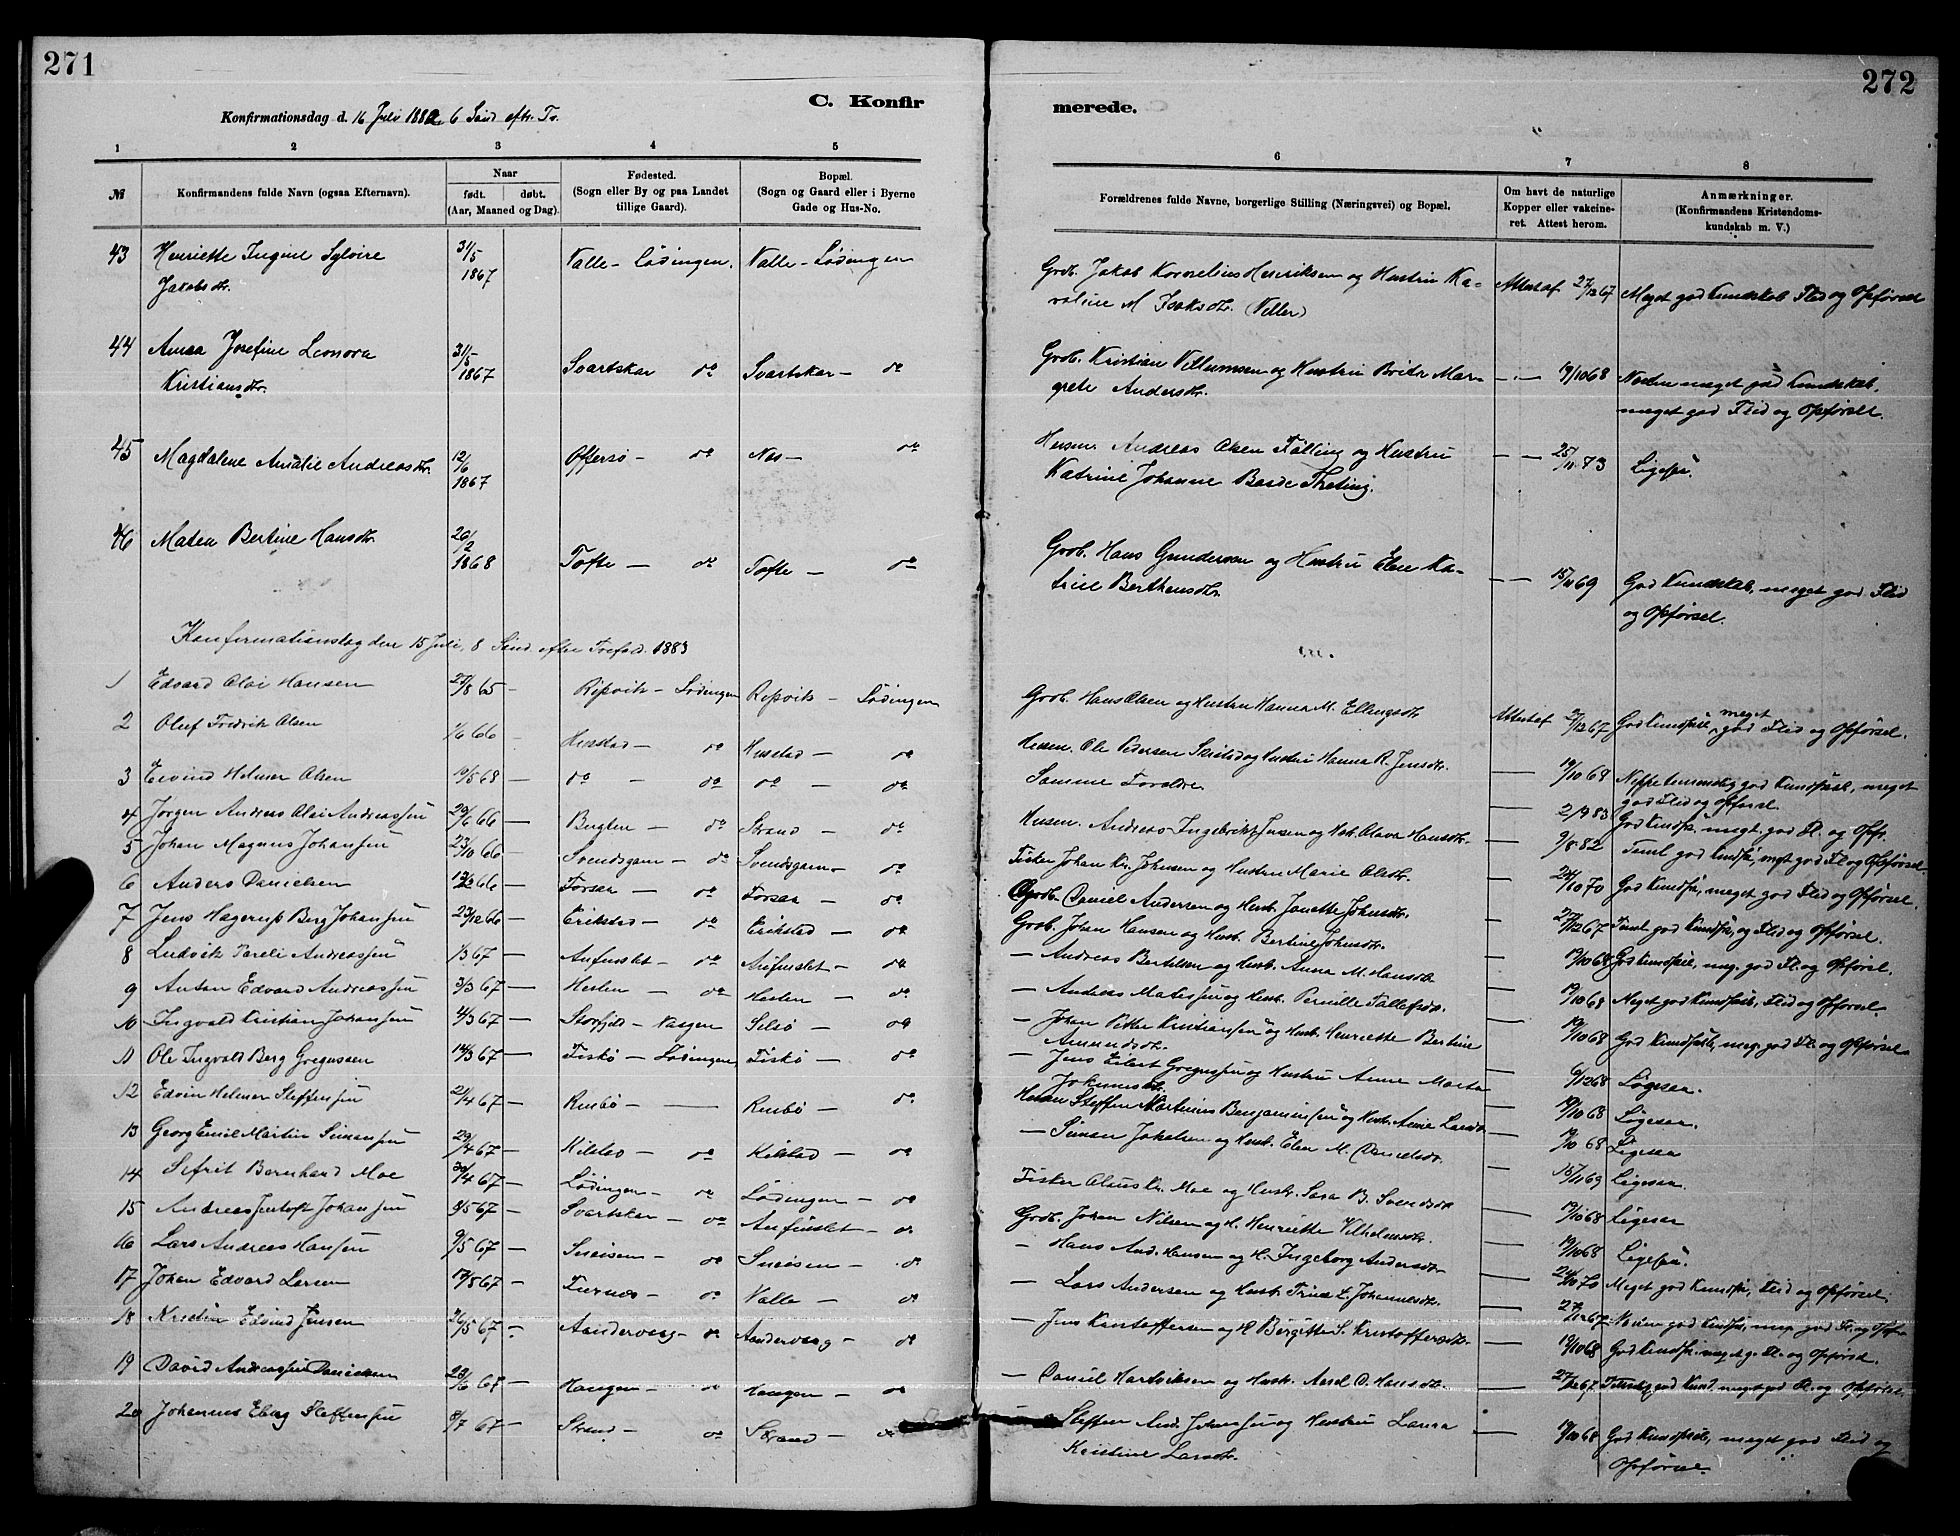 271
272
C. Konfir
merede.
Konfirmationsdag d. 16 Juli 1882 6 Sønd. efter Tr.
1 2 3 4 5 6 7 8
№
Konfirmandens fulde Navn (ogsaa Efternavn).
Naar
født. døbt.
(Aar, Maaned og Dag).
Fødested.
(Sogn eller By og paa Landet
tillige Gaard).
Bopæl.
(Sogn og Gaard eller i Byerne
Gade og Hus-No.
Forældrenes fulde Navne, borgerlige Stilling (Næringsvei) og Bopæl.
Om havt de naturlige
Kopper eller vakcine-
ret. Attest herom.
Anmærkninger.
(Konfirmandens Kristendoms-
kundskab m. V.)
43 Henriette Ingine Sylvine 31/5 Valle - Lødingen. Valle - Lødingen Grdb. Jakob Kornelius Henriksen og Hustru Ka- Attest af 27/12 67 Meget god Kundskab Flid og Opførsel
Jakobsdtr. 1867 roline M Isaksdtr. (Valle)
44 Anna Josefine Leonora 31/5 Svartskar do Svartskar - do Grdb. Kristian Villumsen og Hustru Mar- 19/10 68 Næsten meget god Kundskab,
Kristiansdtr. 1867 grete Andersdtr. meget god Flid og Opførsel.
45 Magdalene Amalie Andreasdtr. 12/6 Offersø - do Nes - do Husm. Andreas Olsen Fölling og Hustru 25/11 73 Ligesaa.
1867 Katrine Johanne
46 Maten Bertine Hansdtr. 26/2 Tofte - do Tofte - do Grdb. Hans Gundersen og Hustru Elen Ka- 15/11 69 God Kundskab, meget god Flid
1868 trine og Opførsel.
Konfirmationsdag den 15 Juli, 8 Sønd. efter Trefold. 1883
1 Edvard Olai Hansen 27/8 65 - Repvik - Lødingen Repvik - Lødingen Grdb. Hans Olsen og Hustru Hanna M. Ellingsdtr Attest af 27/12 67 God Kundsk., meget god Flid og Opførsel.
2 Oluf Fredrik Olsen 1/6 66 - Husstad - do Husstad - do Husm. Ole Pedersen og Hustru Hanna R. Jensdtr. 19/10 68 god Kundsk., meget
god Flid og Opførsel
3 Eivind Helmer Olsen 19/5 68 - do - do do - do Samme Forældre 2/9 83 God Kundsk. megt. god Fl. og Opf.
4 Jørgen Andreas Olai Andreassen 29/6 66 - - do Strand - do Husm. Andreas Ingebrikt Jensen og Hst. Olava Hansdtr. 9/8 82 Teml god Kundsk., megt god Fl og Opførsel
5 Johan Magnus Johansen 23/10 66 - Svendsgam - do Svendsgam - do Fisker Johan Kr. Johnsen og Hustru Marie Olsdtr. 24/10 70 God Kundsk., meget god Flid og Opførsel.
6 Anders Danielsen 13/12 66 - Forsaa - do Forsaa - do Grdb. Daniel Andersen og Hust. Janette Johnsdtr. 27/12 67 Teml god Kundsk., og Flid og Opførsel.
7 Jens Hagerup Berg Johansen 23/12 66 - Erikstad - do Erikstad - do Grdb. Johan Hansen og Hust. Bertine Johnsdtr. 19/10 68 God Kundsk., meg. god Fl. og Opførsel.
8 Ludvik Pareli Andreassen 1/3 67 - Anfinslet - do Anfinslet - do - Andreas Bertelsen og Hust. Anna M. Hansdtr 19/10 68 Meget god Kundsk., Flid og Opførsel.
9 Antan Edvard Andreassen 3/3 67 - Hesten - do Hesten - do - Andreas Matissen og Hust. Pernille Tollefsdtr.
10 Ingvald Kristian Johansen 4/3 67 - Storfjeld - Selsø - do - Johan Petter Kristiansen og Hust. Henriette Bertine 19/10 68 God Kundskb, meg. god Fl. og Opførsel
Amundsdtr.
11 Ole Ingvald Berg Gregussen 14/3 67 - Fiskø - Lødingen Fiskø - do - Jens Eilert Gregussen og Hustru Anne Marta 9/12 68 Ligesaa.
Johannesdtr.
12 Edvin Helmer Steffensen 21/4 67 - Rinbø - Rinbø - do Husm Steffen Martinus Benjaminsen og Hust. Anne Larsdtr 19/10 68 Ligesaa.
13 Georg Emil Martin Simonsen 29/4 67 - Kilstad - do Kilstad - do - Simon Jakobsen og Hust. Elen M. Danielsdtr. 19/10 68 Ligesaa
14 Sefrit Bernhard Moe 30/4 67 - Lødingen - do Lødingen - do Fisker Olaus Kr. Moe og Hustr. Sara B. Svendsdtr 15/11 69 Ligesaa.
15 Andreas Jentoft Johansen 9/5 67 - Svartskar - do Anfinslet - do Grdb. Johan Nilsen og H. Henriette Vilhelmsdtr. 19/10 68 Ligesaa
16 Lars Andreas Hansen 9/5 67 - Sneisen - do Sneisen - do - Hans And. Hansen og H. Ingeborg Andersdtr 19/10 68 Ligesaa.
17 Johan Edvard Larsen 17/5 67 - Furnes - do Valle - do - Lars Andersen og Hust. Trine L. Johannesdtr. 24/10 70 Meget god Kundsk., Flid og Opførsel.
18 Kristin Edvind Jensen 26/5 67 - Aandervaag - do Aandervaag - do - Jens Kristoffersen og H Birgitte S. Kristoffersdtr. 27/12 67 Næsten god Kundsk., meg. god Fl. og Opfø
19 David Andreassen Danielsen 23/6 67 - Haugen - do Haugen - do - Daniel Hartviksen og Hust. Axel O. Hansdtr. 19/10 68 God Kundsk. meget g. Fl. og Opførsel.
27/12 67 god Kund. meget god Fl. og Opførsel
20 Johannes Eberg Steffensen 8/7 67 - Strand - do Strand - do - Steffen And. Johnsen og Hustru Laura 19/10 68 God Kundskb, meget god Flid og
Kristine Larsdtr. Opførsel.